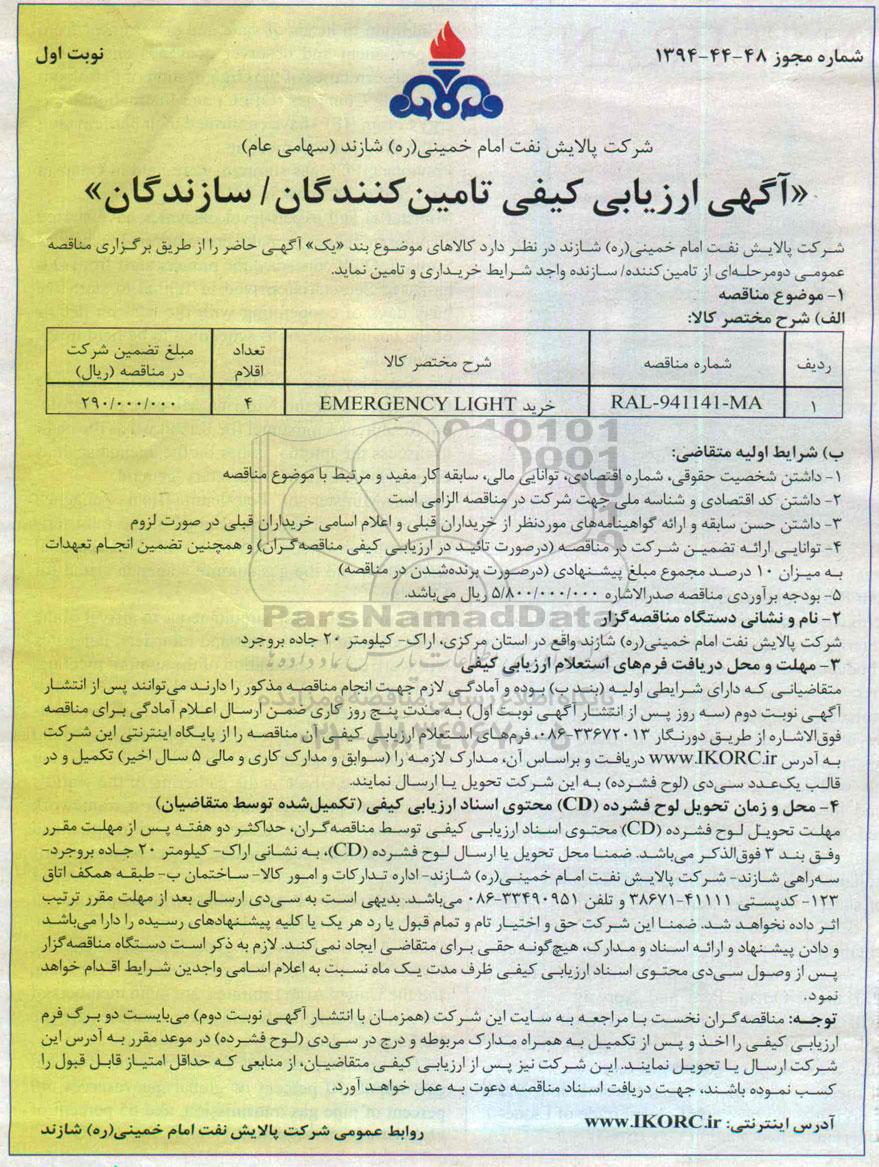 شماره مجوز ۴۸-۴۴-۱۳۹۴
نوبت اول
شرکت پالایش نفت امام خمینی(ره) شازند (سهامی عام)
«آگهی ارزیابی کیفی تامین‌کنندگان/ سازندگان»
شرکت پالایش نفت امام خمینی(ره) شازند در نظر دارد کالاهای موضوع بند «یک» آگهی حاضر را از طریق برگزاری مناقصه
عمومی دومرحله‌ای از تامین‌کننده/ سازنده واجد شرایط خریداری و تامین نماید.
۱- موضوع مناقصه
الف) شرح مختصر کالا:
ردیف | شماره مناقصه | شرح مختصر کالا | تعداد اقلام | مبلغ تضمین شرکت در مناقصه (ریال)
۱ | RAL-941141-MA | خرید EMERGENCY LIGHT | ۴ | ۲۹۰/۰۰۰/۰۰۰
ب) شرایط اولیه متقاضی:
۱- داشتن شخصیت حقوقی، شماره اقتصادی، توانایی مالی، سابقه کار مفید و مرتبط با موضوع مناقصه
۲- داشتن کد اقتصادی و شناسه ملی جهت شرکت در مناقصه الزامی است
۳- داشتن حسن سابقه و ارائه گواهینامه‌های موردنظر از خریداران قبلی و اعلام اسامی خریداران قبلی در صورت لزوم
۴- توانایی ارائه تضمین شرکت در مناقصه (درصورت تائید در ارزیابی کیفی مناقصه‌گران) و همچنین تضمین انجام تعهدات
به میزان ۱۰ درصد مجموع مبلغ پیشنهادی (درصورت برنده‌شدن در مناقصه)
۵- بودجه برآوردی مناقصه صدرالاشاره ۵/۸۰۰/۰۰۰/۰۰۰ ریال می‌باشد.
ParsNamadData
۲- نام و نشانی دستگاه مناقصه‌گزار
شرکت پالایش نفت امام خمینی(ره) شازند واقع در استان مرکزی، اراک- کیلومتر ۲۰ جاده بروجرد
۳- مهلت و محل دریافت فرم‌های استعلام ارزیابی کیفی
متقاضیانی که دارای شرایطی اولیه (بند ب) بوده و آمادگی لازم جهت انجام مناقصه مذکور را دارند می‌توانند پس از انتشار
آگهی نوبت دوم (سه روز پس از انتشار آگهی نوبت اول) به مدت پنج روز کاری ضمن ارسال اعلام آمادگی برای مناقصه
فوق‌الاشاره از طریق دورنگار ۳۳۶۷۲۰۱۳-۰۸۶، فرم‌های استعلام ارزیابی کیفی آن مناقصه را از پایگاه اینترنتی این شرکت
به آدرس www.IKORC.ir دریافت و براساس آن، مدارک لازمه را (سوابق و مدارک کاری و مالی ۵ سال اخیر) تکمیل و در
قالب یک‌عدد سی‌دی (لوح فشرده) به این شرکت تحویل یا ارسال نمایند.
۴- محل و زمان تحویل لوح فشرده (CD) محتوی اسناد ارزیابی کیفی (تکمیل‌شده توسط متقاضیان)
مهلت تحویل لوح فشرده (CD) محتوی اسناد ارزیابی کیفی توسط مناقصه‌گران، حداکثر دو هفته پس از مهلت مقرر
وفق بند ۳ فوق‌الذکر می‌باشد. ضمنا محل تحویل یا ارسال لوح فشرده (CD)، به نشانی اراک- کیلومتر ۲۰ جاده بروجرد-
سه‌راهی شازند- شرکت پالایش نفت امام خمینی(ره) شازند- اداره تدارکات و امور کالا- ساختمان ب- طبقه همکف اتاق
۱۲۳- کدپستی ۴۱۱۱۱-۳۸۶۷۱ و تلفن ۳۳۴۹۰۹۵۱-۰۸۶ می‌باشد. بدیهی است به سی‌دی ارسالی بعد از مهلت مقرر ترتیب
اثر داده نخواهد شد. ضمنا این شرکت حق و اختیار تام و تمام قبول یا رد هر یک یا کلیه پیشنهادهای رسیده را دارا می‌باشد
و دادن پیشنهاد و ارائه اسناد و مدارک، هیچ‌گونه حقی برای متقاضی ایجاد نمی‌کند. لازم به ذکر است دستگاه مناقصه‌گزار
پس از وصول سی‌دی محتوی اسناد ارزیابی کیفی ظرف مدت یک ماه نسبت به اعلام اسامی واجدین شرایط اقدام خواهد
نمود.
توجه: مناقصه‌گران نخست با مراجعه به سایت این شرکت (همزمان با انتشار آگهی نوبت دوم) می‌بایست دو برگ فرم
ارزیابی کیفی را اخذ و پس از تکمیل به همراه مدارک مربوطه و درج در سی‌دی (لوح فشرده) در موعد مقرر به آدرس این
شرکت ارسال یا تحویل نمایند. این شرکت نیز پس از ارزیابی کیفی متقاضیان، از منابعی که حداقل امتیاز قابل قبول را
کسب نموده باشند، جهت دریافت اسناد مناقصه دعوت به عمل خواهد آورد.
آدرس اینترنتی: www.IKORC.ir
روابط عمومی شرکت پالایش نفت امام خمینی(ره) شازند